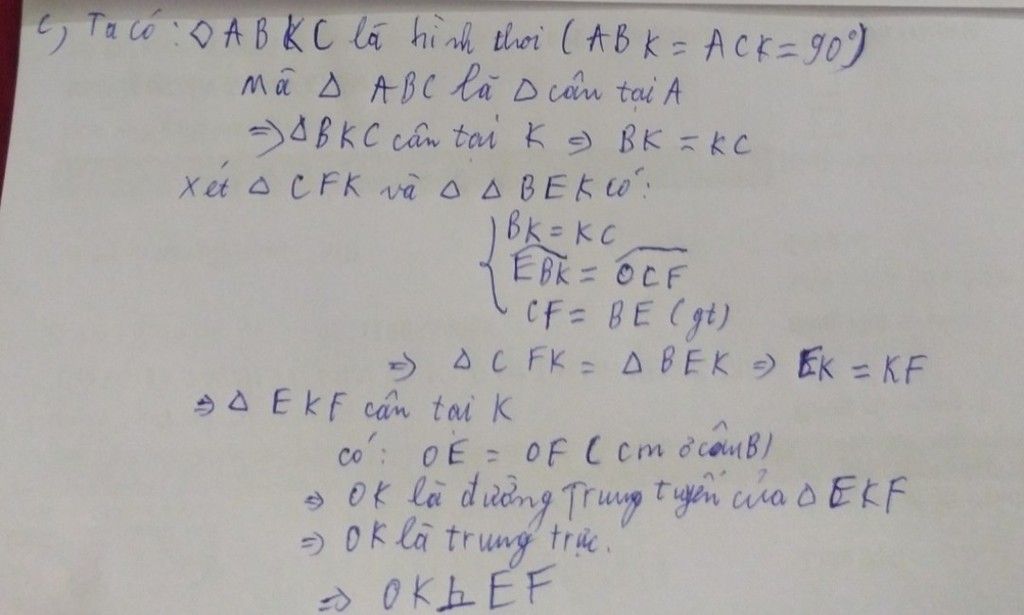 c, Ta có: ◇ABKC là hình thoi (ABK = ACK = 90°)
Mà Δ ABC là Δ cân tại A
=> ΔBKC cân tại K => BK = KC
Xét Δ CFK và Δ Δ BEK có:
BK = KC
EBK = OCF
CF = BE (gt)
=> Δ CFK = Δ BEK => EK = KF
=> Δ EKF cân tại K
có: OE = OF (cm ở câu B)
=> OK là đường trung tuyến của Δ EKF
=> OK là trung trực.
=> OK ⊥ EF